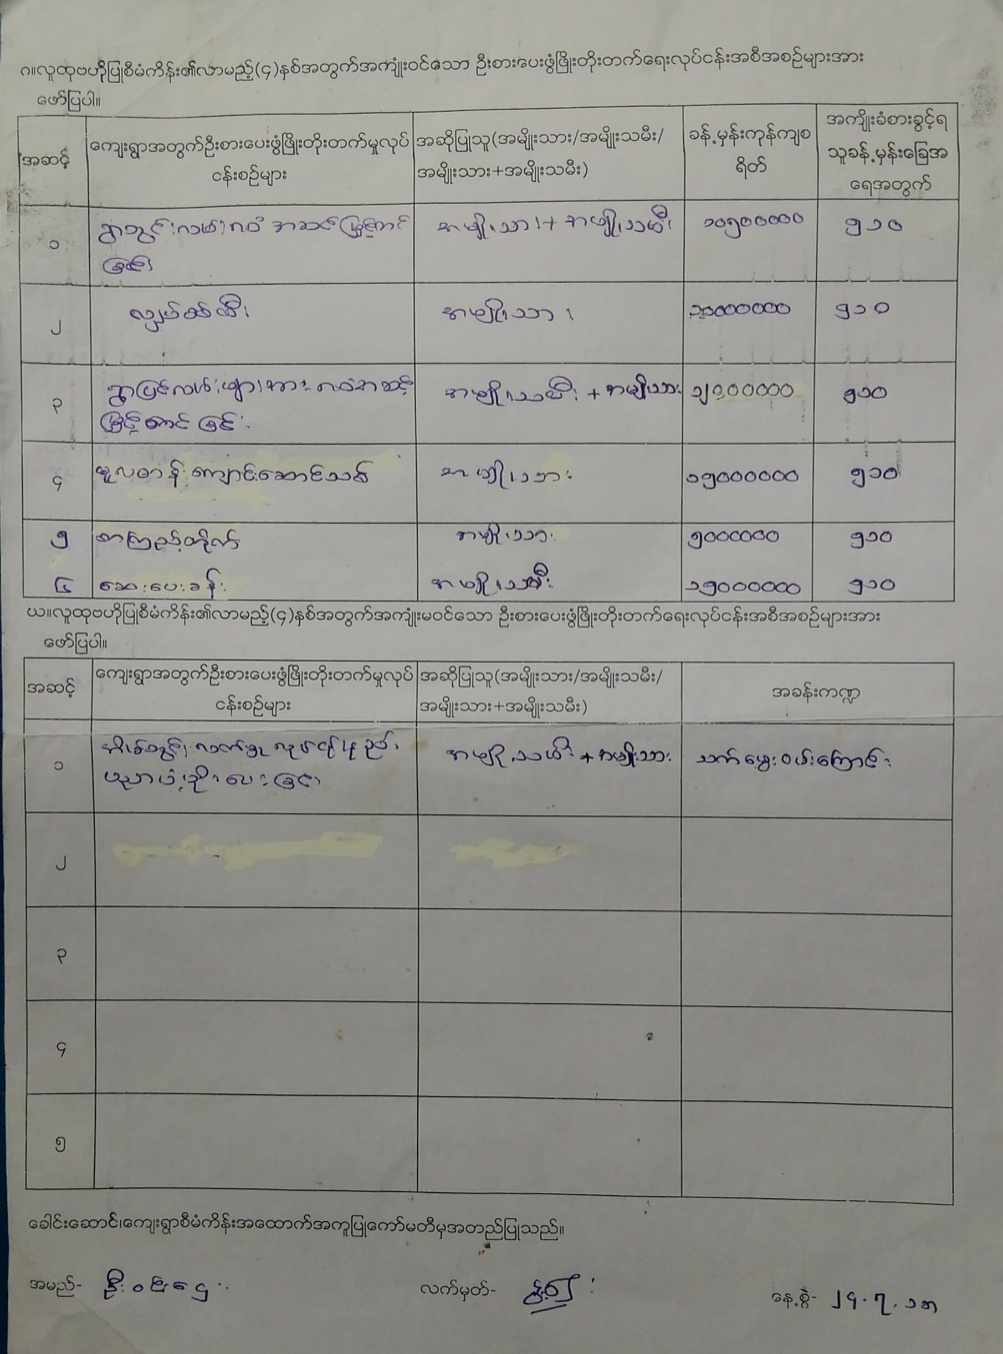 ဂ။လူထုဗဟိုပြုစီမံကိန်း၏လာမည့်(၄)နှစ်အတွက်အကျုံးဝင်သော ဦးစားပေးဖွံ့ဖြိုးတိုးတက်ရေးလုပ်ငန်းအစီအစဉ်များအား
ဖော်ပြပါ။
အဆင့် ကျေးရွာအတွက်ဦးစားပေးဖွံ့ဖြိုးတိုးတက်မှုလုပ်ငန်းစဉ်များ အဆိုပြုသူ(အမျိုးသား/အမျိုးသမီး/အမျိုးသား+အမျိုးသမီး) ခန့်မှန်းကုန်ကျစရိတ် အကျိုးခံစားခွင့်ရသူခန့်မှန်းခြေအရေအတွက်
၁ ရွာတွင်းလမ်း အဆင့်မြှင့်တင်ခြင်း အမျိုးသား+အမျိုးသမီး ၁၀၅၀၀၀၀၀ ၅၁၀
၂ လျှပ်စစ်မီး အမျိုးသား ၅၁၀
၃ ရွာပြင်လမ်းများအား အဆင့်မြှင့်တင်ခြင်း အမျိုးသမီး+အမျိုးသား ၅၁၀
၄ မူလတန်းကျောင်းဆောင်သစ် အမျိုးသား ၁၅၀၀၀၀၀၀ ၅၁၀
၅ စာကြည့်တိုက် အမျိုးသား ၅၀၀၀၀၀၀ ၅၁၀
၆ ဆေးပေးခန်း အမျိုးသမီး ၁၅၀၀၀၀၀၀ ၅၁၀
ဃ။လူထုဗဟိုပြုစီမံကိန်း၏လာမည့်(၄)နှစ်အတွက်အကျုံးမဝင်သော ဦးစားပေးဖွံ့ဖြိုးတိုးတက်ရေးလုပ်ငန်းအစီအစဉ်များအား
ဖော်ပြပါ။
အဆင့် ကျေးရွာအတွက်ဦးစားပေးဖွံ့ဖြိုးတိုးတက်မှုလုပ်ငန်းစဉ်များ အဆိုပြုသူ(အမျိုးသား/အမျိုးသမီး/အမျိုးသား+အမျိုးသမီး) အခန်းကဏ္ဍ
၁ အိမ်တွင်း လက်မှု လုပ်ငန်း ပညာပို့ချပေးခြင်း အမျိုးသမီး+အမျိုးသား သက်မွေးဝမ်းကြောင်း
၂
၃
၄
၅
ခေါင်းဆောင်၊ကျေးရွာစီမံကိန်းအထောက်အကူပြုကော်မတီမှအတည်ပြုသည်။
အမည်- ဦးဝင်းဌေး လက်မှတ်- နေ့စွဲ- ၂၄.၇.၁၈